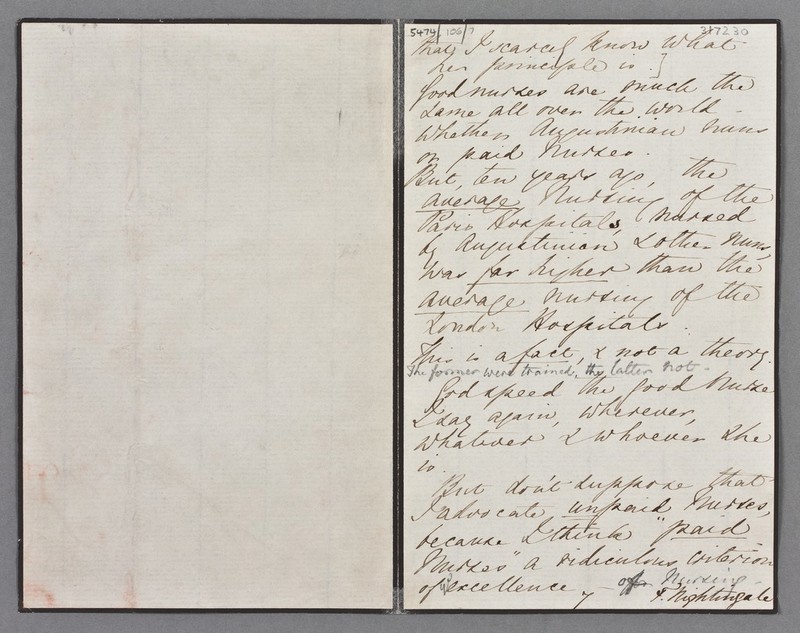 5474/106/7 317230
that I scarcely know what
her principle is.]
Good nurses are much the
same all over the world -
whether Augustinian nuns
or paid Nurses.
But, ten years ago, the
average Nursing of the
Paris Hospitals, nursed
by Augustinian & other nuns,
was far higher than the
average nursing of the
London Hospitals.
This is a fact, & not a theory.
The former were trained, the latter not -
God speed the good Nurse
I say again, wherever,
whatever & whoever she
is.
But don't suppose that
I advocate unpaid Nurses,
because I think "paid
Nurses" a ridiculous criterion
of excellence - of Nursing -
F. Nightingale